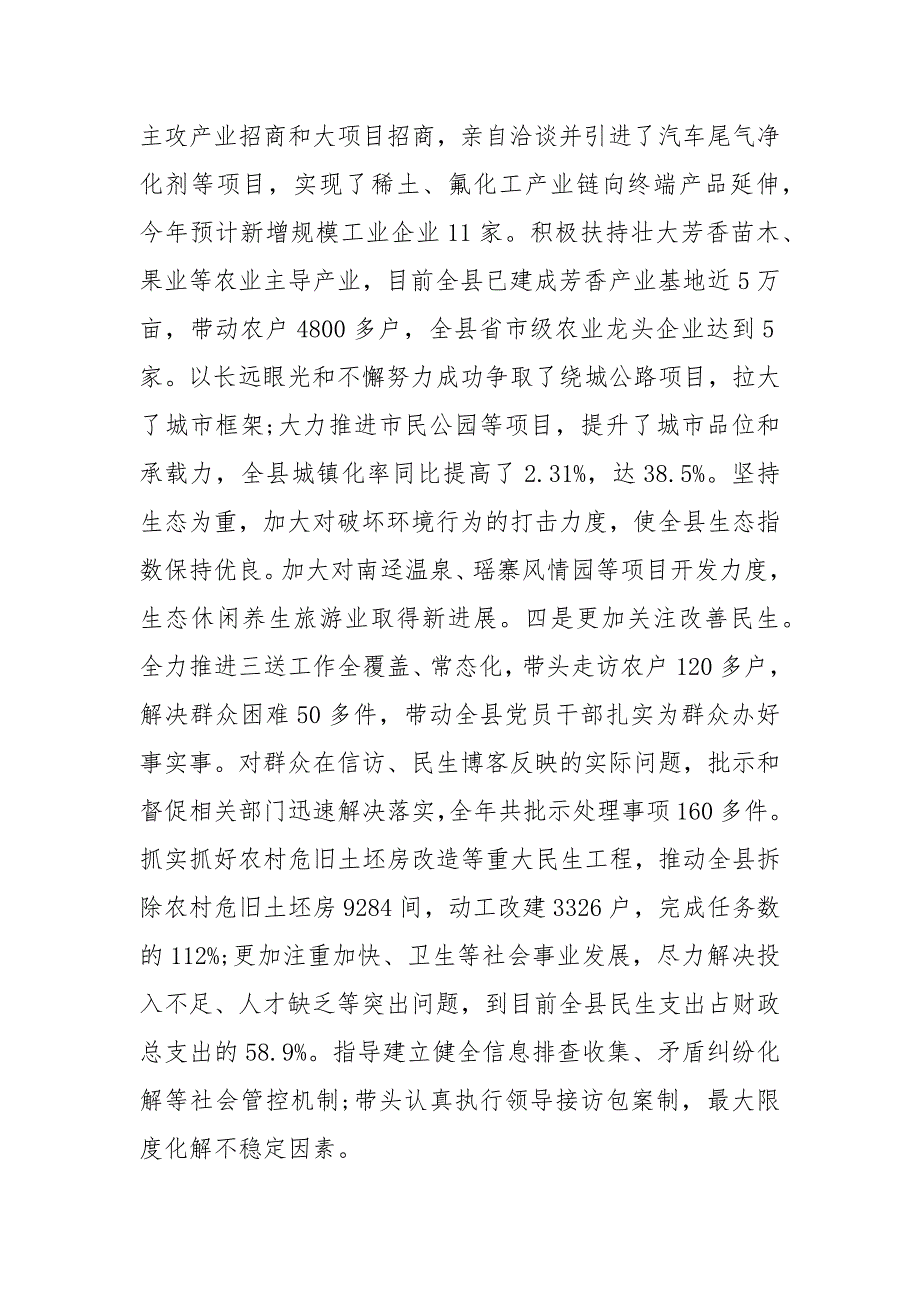 主攻产业招商和大项目招商，亲自洽谈并引进了汽车尾气净
化剂等项目，实现了稀土、氟化工产业链向终端产品延伸，
今年预计新增规模工业企业 11 家。积极扶持壮大芳香苗木、
果业等农业主导产业，目前全县已建成芳香产业基地近 5 万
亩，带动农户 4800 多户，全县省市级农业龙头企业达到 5
家。以长远眼光和不懈努力成功争取了绕城公路项目，拉大
了城市框架;大力推进市民公园等项目，提升了城市品位和
承载力，全县城镇化率同比提高了 2.31%，达 38.5%。坚持
生态为重，加大对破坏环境行为的打击力度，使全县生态指
数保持优良。加大对南迳温泉、瑶寨风情园等项目开发力度，
生态休闲养生旅游业取得新进展。四是更加关注改善民生。
全力推进三送工作全覆盖、常态化，带头走访农户 120 多户，
解决群众困难 50 多件，带动全县党员干部扎实为群众办好
事实事。对群众在信访、民生博客反映的实际问题，批示和
督促相关部门迅速解决落实，全年共批示处理事项 160 多件。
抓实抓好农村危旧土坯房改造等重大民生工程，推动全县拆
除农村危旧土坯房 9284 间，动工改建 3326 户，完成任务数
的 112%;更加注重加快、卫生等社会事业发展，尽力解决投
入不足、人才缺乏等突出问题，到目前全县民生支出占财政
总支出的 58.9%。指导建立健全信息排查收集、矛盾纠纷化
解等社会管控机制;带头认真执行领导接访包案制，最大限
度化解不稳定因素。